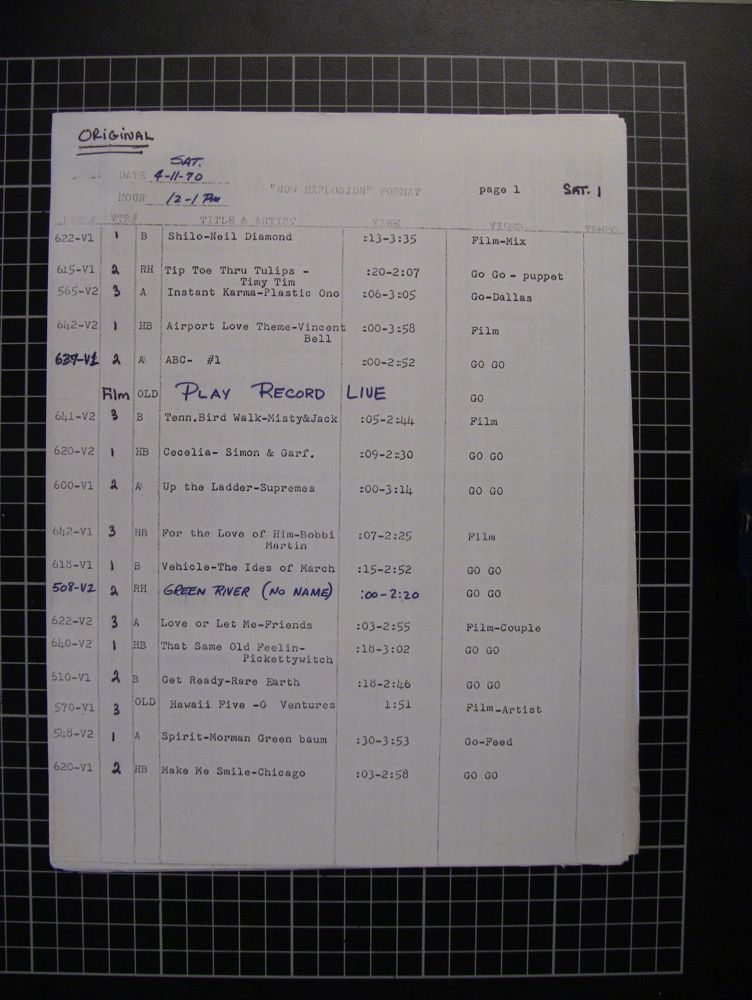 ORIGINAL
SAT.
DATE 4-11-70
"NOW EXPLOSION" FORMAT page 1 SAT. 1
HOUR 12-1 PM
VTR# TITLE & ARTIST TIME VIDEO TEMPO
622-V1 1 B Shilo-Neil Diamond :13-3:35 Film-Mix
615-V1 2 RH Tip Toe Thru Tulips - :20-2:07 Go Go - puppet
Timy Tim
565-V2 3 A Instant Karma-Plastic Ono :06-3:05 Go-Dallas
642-V2 1 HB Airport Love Theme-Vincent :00-3:58 Film
Bell
637-V1 2 A ABC- #1 :00-2:52 GO GO
Film OLD PLAY RECORD LIVE GO
641-V2 3 B Tenn.Bird Walk-Misty&Jack :05-2:44 Film
620-V2 1 HB Cecelia- Simon & Garf. :09-2:30 GO GO
600-V1 2 A Up the Ladder-Supremes :00-3:14 GO GO
642-V1 3 HB For the Love of Him-Bobbi :07-2:25 Film
Martin
618-V1 1 B Vehicle-The Ides of March :15-2:52 GO GO
508-V2 2 RH GREEN RIVER (NO NAME) :00-2:20 GO GO
622-V2 3 A Love or Let Me-Friends :03-2:55 Film-Couple
640-V2 1 HB That Same Old Feelin- :18-3:02 GO GO
Pickettywitch
610-V1 2 B Get Ready-Rare Earth :18-2:46 GO GO
570-V1 3 OLD Hawaii Five -O Ventures 1:51 Film-Artist
548-V2 1 A Spirit-Morman Green baum :30-3:53 Go-Feed
620-V1 2 HB Make Me Smile-Chicago :03-2:58 GO GO